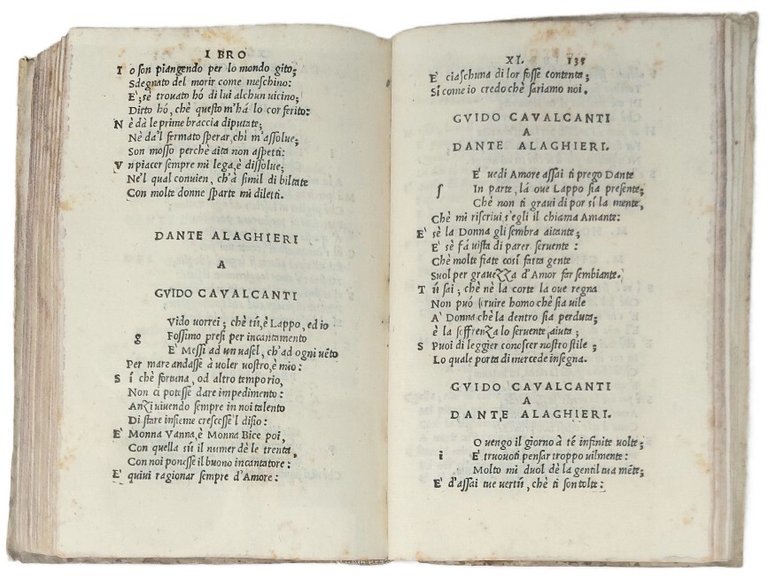 I BRO
I o son piangendo per lo mondo gito;
Sdegnato del morir come meschino:
E'; sè trovato hó di lui alchun uicino;
Ditto hó, chè questo m'há lo cor ferito:
N è dà le prime braccia diputate;
Nè dà'l fermato sperar, chì m'assolue;
Son mosso perchè aita non aspetti:
V n piacer sempre mi lega, è dissolue;
Ne'l qual conuien, ch'à simil di biltate
Con molte donne sparte mi diletti.
DANTE ALAGHIERI
A
GVIDO CAVALCANTI
Vido uorrei; chè tú, è Lappo, ed io
g Fossimo presi per incantamento
E' Messi ad un uasel, ch'ad ogni uẽto
Per mare andasse à uoler uostro, è mio:
S í chè fortuna, od altro temporio,
Non ci potesse dare impedimento:
Anzi uiuendo sempre in noi talento
Di stare insieme crescesse'l disio:
E' Monna Vanna, è Monna Bice poi,
Con quella sú il numer dè le trenta,
Con noi ponesse il buono incantatore:
E' quiui ragionar sempre d'Amore:
XI. 135
E' ciaschuna di lor fosse contenta;
Sí come io credo chè sariamo noi.
GVIDO CAVALCANTI
A
DANTE ALAGHIERI.
E' uedi Amore assai ti prego Dante
f In parte, lá oue Lappo sia presente;
Chè non ti graui di por sí la mente,
Chè mi riscriui s'egli il chiama Amante:
E' sè la Donna gli sembra aitante;
E' sè fá uista di parer seruente:
Chè molte fiate cosí fatta gente
Suol per grauezza d'Amor far sembiante.
T ú sai; chè nè la corte la oue regna
Non puó seruire homo chè sia uile
A' Donna chè la dentro sia perduta;
è la seffrenza lo seruente, aiuta;
S Puoi di leggier conoscer nostro stile;
Lo quale porta di mercede insegna.
GVIDO CAVALCANTI
A
DANTE ALAGHIERI.
O uengo il giorno à té infinite uolte;
i E' truouoti pensar troppo uilmente:
Molto mi duol dè la gentil tua mẽte;
E' d'assai tue uertú, chè ti son tolte: